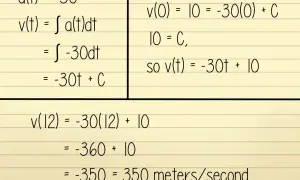 v(t) = ∫ a(t)dt
= ∫ -30dt
= -30t + C
v(0) = 10 = -30(0) + C
10 = C,
so v(t) = -30t + 10
v(12) = -30(12) + 10
= -360 + 10
= -350 = 350 meters/second